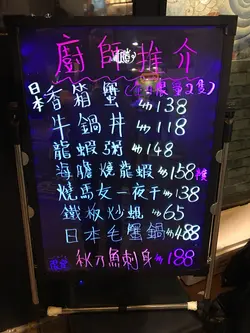 廚師推介
日本香箱蟹 $138
牛鍋丼 $118
龍蝦粥 $148
海膽燒龍蝦 $158
燒馬友一夜干 $138
鐵板炒蜆 $65
日本毛蟹鍋 $488
秋刀魚刺身 $188